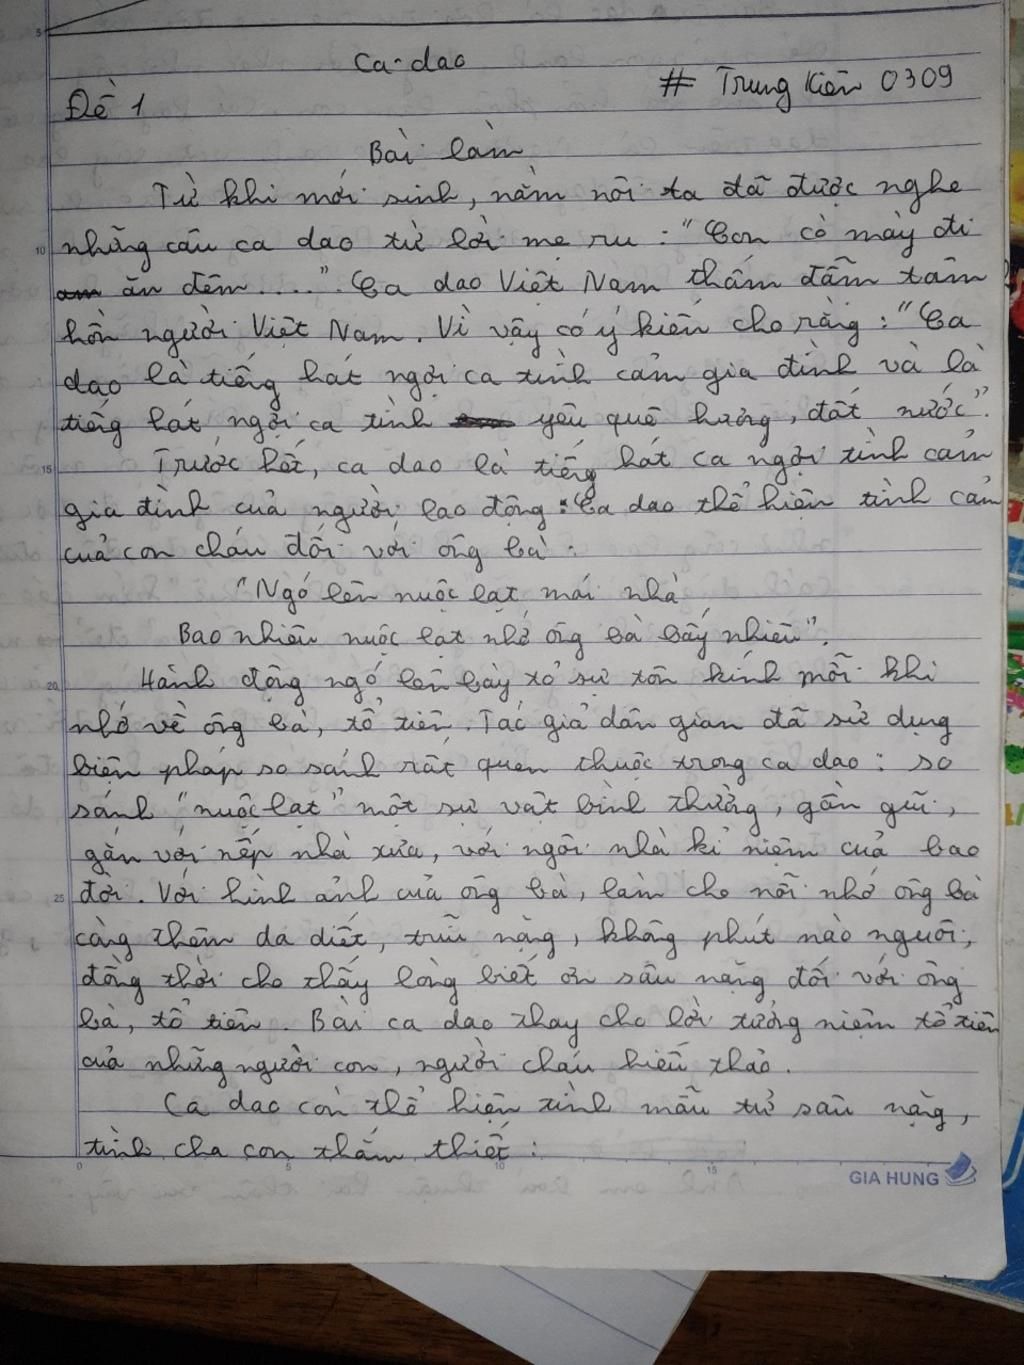 Ca dao
# Trung Kiên 0309
Đề 1
Bài làm
Từ khi mới sinh, nằm nôi ta đã được nghe
những câu ca dao từ lời mẹ ru : "Con cò mày đi
ăn đêm....". Ca dao Việt Nam thấm đẫm tâm
hồn người Việt Nam. Vì vậy có ý kiến cho rằng : "Ca
dao là tiếng hát ngợi ca tình cảm gia đình và là
tiếng hát ngợi ca tình yêu quê hương, đất nước".
Trước hết, ca dao là tiếng hát ca ngợi tình cảm
gia đình của người lao động. Ca dao thể hiện tình cảm
của con cháu đối với ông bà :
"Ngó lên nuộc lạt mái nhà
Bao nhiêu nuộc lạt nhớ ông bà bấy nhiêu".
Hành động ngó lên bày tỏ sự tôn kính mỗi khi
nhớ về ông bà, tổ tiên. Tác giả dân gian đã sử dụng
biện pháp so sánh rất quen thuộc trong ca dao : so
sánh "nuộc lạt" một sự vật bình thường, gần gũi,
gắn với nếp nhà xưa, với ngôi nhà kỉ niệm của bao
đời. Với hình ảnh của ông bà, làm cho nỗi nhớ ông bà
càng thêm da diết, trĩu nặng, không phút nào nguôi,
đồng thời cho thấy lòng biết ơn sâu nặng đối với ông
bà, tổ tiên. Bài ca dao thay cho lời tưởng niệm tổ tiên
của những người con, người cháu hiếu thảo.
Ca dao còn thể hiện tình mẫu tử sâu nặng,
tình cha con thắm thiết :
5
10
15
20
25
0 5 10 15
GIA HUNG